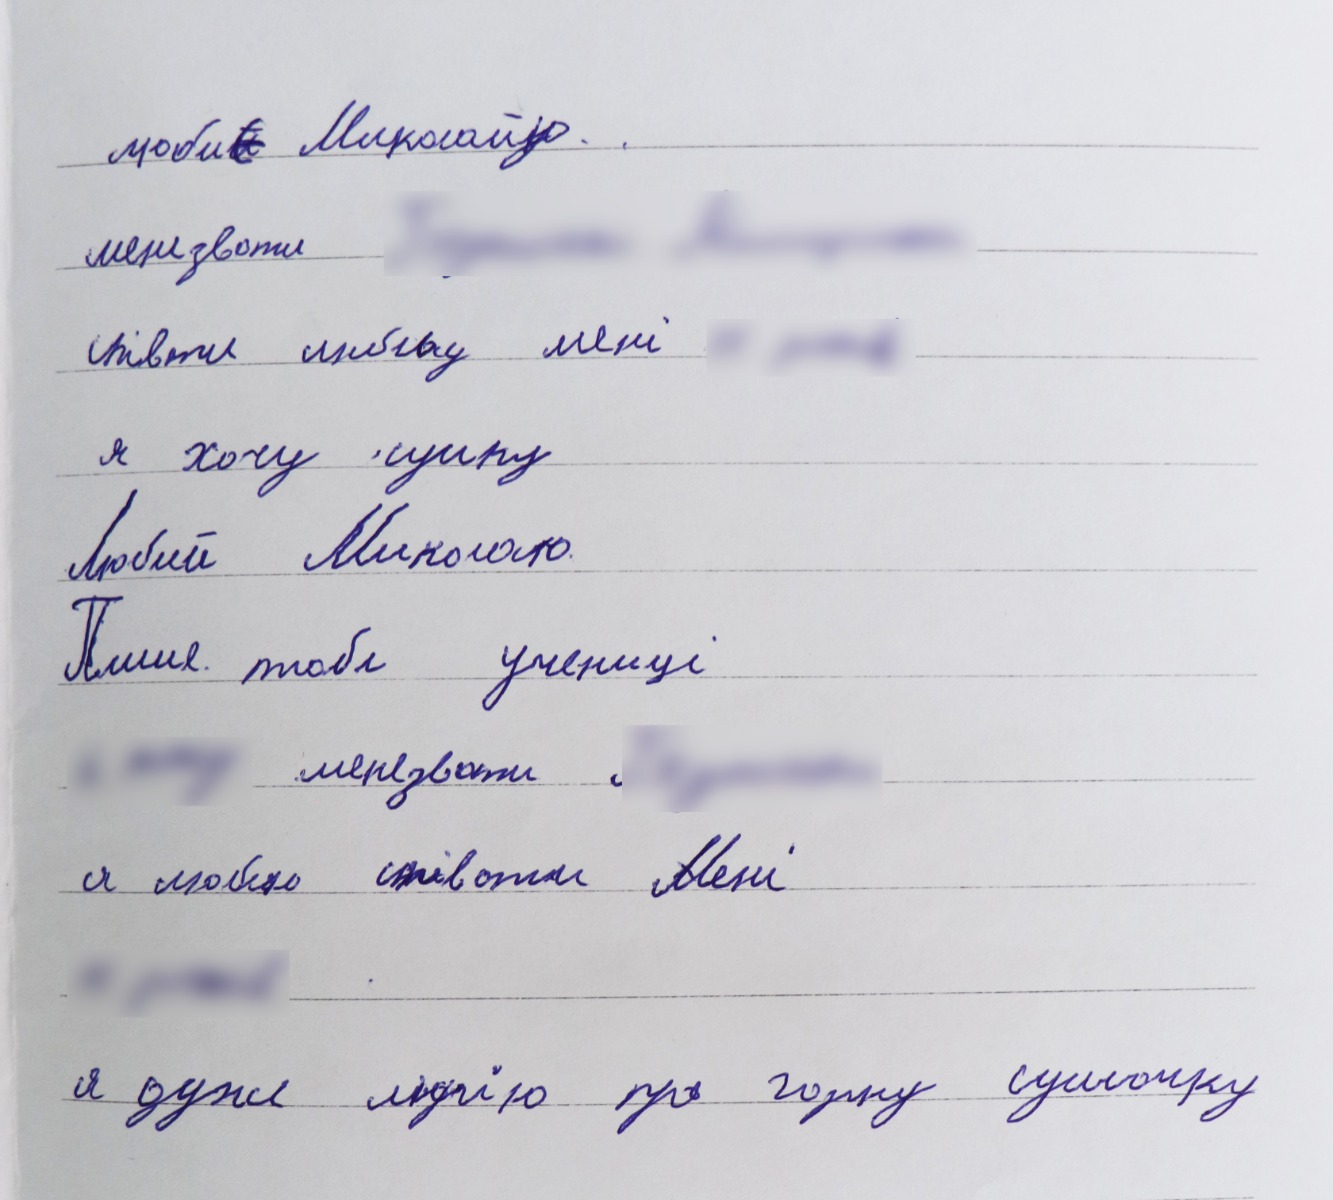 любий Миколайю..
менезвати
співати люблу мені
я хочу сумку
Любий Миколаю.
Пише. тобі учениці
менезвати
я люблю співати Мені
я дуже мрію про гарну сумочку